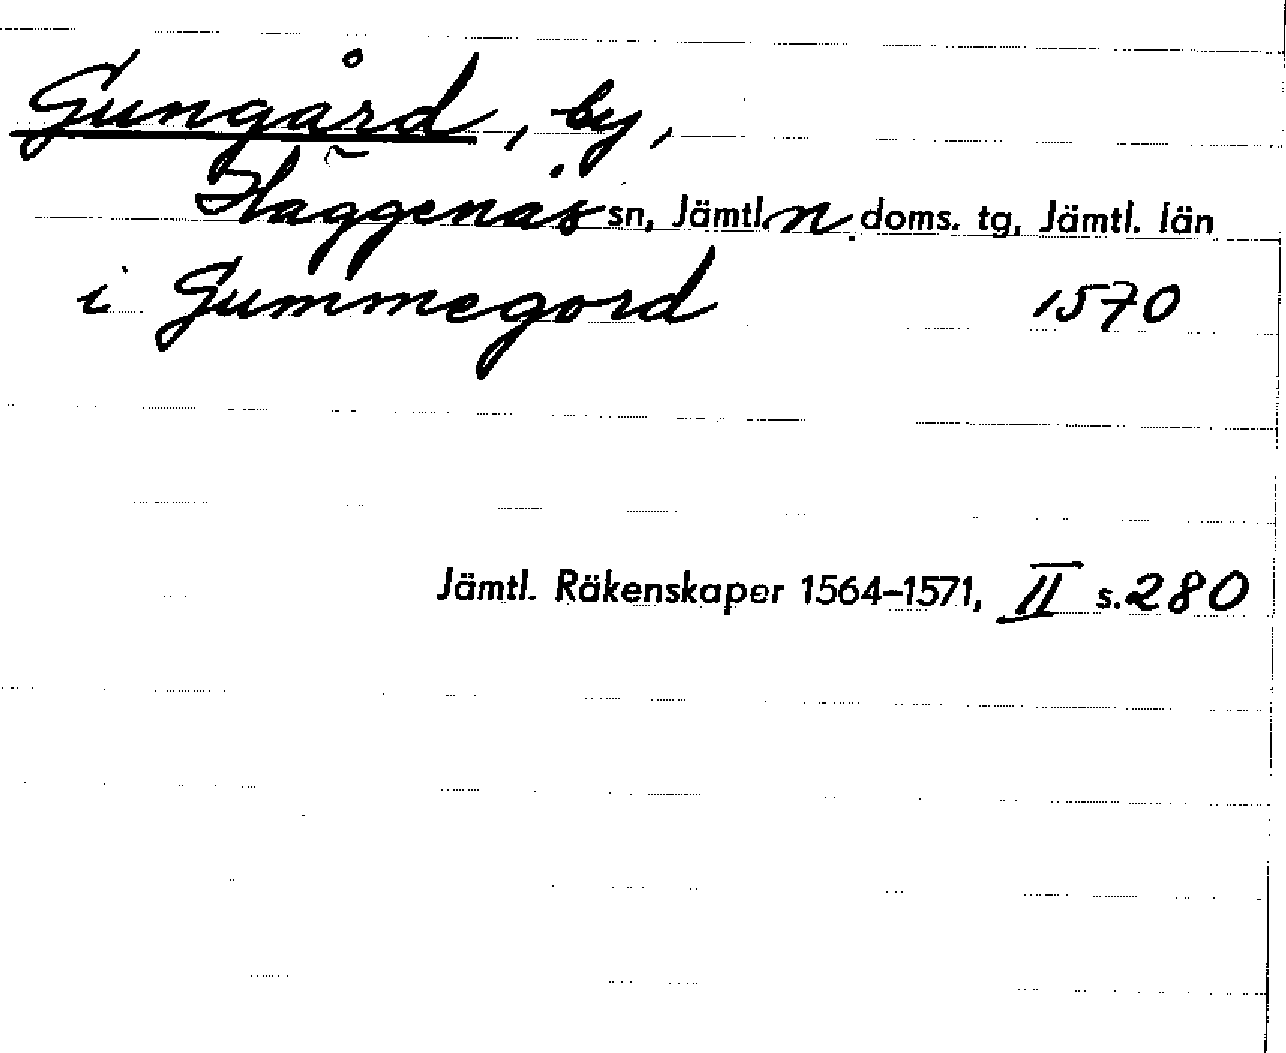 Gungård, by,
Häggenås sn, Jämtl. n. doms. tg, Jämtl. län
i Gummegord 1570
Jämtl. Räkenskaper 1564–1571, II s. 280